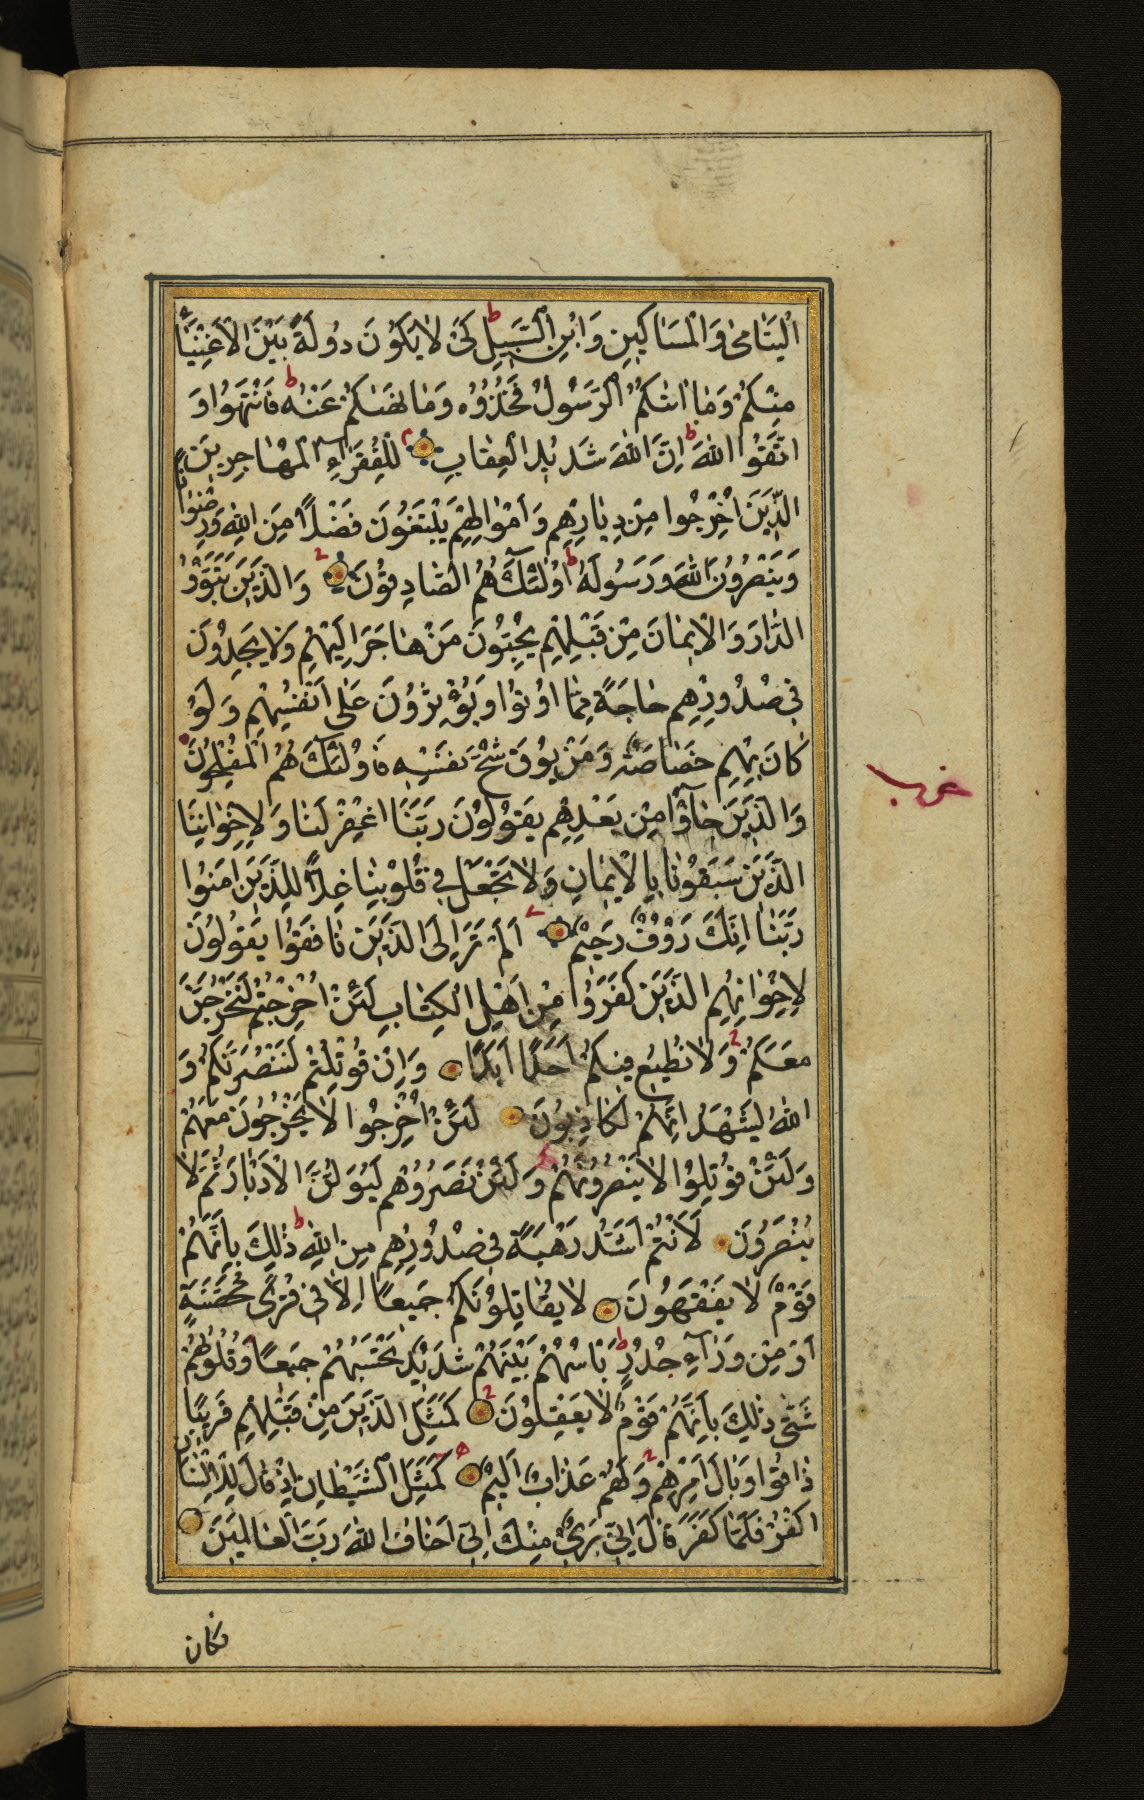 الْيَتَامىٰ وَالْمَسَاكِينِ وَابْنِ السَّبِيلِ ط كَىْ لَا يَكُونَ دُولَةً بَيْنَ الْاَغْنِيَآءِ
مِنْكُمْ وَمَا اٰتٰىكُمُ الرَّسُولُ فَخُذُوهُ وَمَا نَهٰىكُمْ عَنْهُ ط فَانْتَهُوا وَ
اتَّقُوا اللهَ ط اِنَّ اللهَ شَدِيدُ الْعِقَابِ م لِلْفُقَرَاءِ الْمُهَاجِرِينَ
الَّذِينَ اُخْرِجُوا مِنْ دِيَارِهِمْ وَاَمْوَالِهِمْ يَبْتَغُونَ فَضْلًا مِنَ اللهِ وَرِضْوَانًا
وَيَنْصُرُونَ اللهَ وَرَسُولَهُ ط اُولٰئِكَ هُمُ الصَّادِقُونَ وَالَّذِينَ تَبَوَّؤُ
الدَّارَ وَالْاِيمَانَ مِنْ قَبْلِهِمْ يُحِبُّونَ مَنْ هَاجَرَ اِلَيْهِمْ وَلَا يَجِدُونَ
فِى صُدُورِهِمْ حَاجَةً مِمَّا اُوتُوا وَيُؤْثِرُونَ عَلٰى اَنْفُسِهِمْ وَلَوْ
كَانَ بِهِمْ خَصَاصَةٌ وَمَنْ يُوقَ شُحَّ نَفْسِهِ فَاُولٰئِكَ هُمُ الْمُفْلِحُونَ
غرب
وَالَّذِينَ جَآؤُا مِنْ بَعْدِهِمْ يَقُولُونَ رَبَّنَا اغْفِرْ لَنَا وَلِاِخْوَانِنَا
الَّذِينَ سَبَقُونَا بِالْاِيمَانِ وَلَا تَجْعَلْ فِى قُلُوبِنَا غِلًّا لِلَّذِينَ اٰمَنُوا
رَبَّنَا اِنَّكَ رَؤُفٌ رَحِيمٌ اَلَمْ تَرَ اِلَى الَّذِينَ نَافَقُوا يَقُولُونَ
لِاِخْوَانِهِمُ الَّذِينَ كَفَرُوا مِنْ اَهْلِ الْكِتَابِ لَئِنْ اُخْرِجْتُمْ لَنَخْرُجَنَّ
مَعَكُمْ وَلَا نُطِيعُ فِيكُمْ اَحَدًا اَبَدًا وَاِنْ قُوتِلْتُمْ لَنَنْصُرَنَّكُمْ وَ
اللهُ يَشْهَدُ اِنَّهُمْ لَكَاذِبُونَ لَئِنْ اُخْرِجُوا لَا يَخْرُجُونَ مَعَهُمْ
وَلَئِنْ قُوتِلُوا لَا يَنْصُرُونَهُمْ وَلَئِنْ نَصَرُوهُمْ لَيُوَلُّنَّ الْاَدْبَارَ ثُمَّ لَا
يُنْصَرُونَ لَاَنْتُمْ اَشَدُّ رَهْبَةً فِى صُدُورِهِمْ مِنَ اللهِ ط ذٰلِكَ بِاَنَّهُمْ
قَوْمٌ لَا يَفْقَهُونَ لَا يُقَاتِلُونَكُمْ جَمِيعًا اِلَّا فِى قُرًى مُحَصَّنَةٍ
اَوْ مِنْ وَرَآءِ جُدُرٍ ط بَاْسُهُمْ بَيْنَهُمْ شَدِيدٌ تَحْسَبُهُمْ جَمِيعًا وَقُلُوبُهُمْ
شَتّٰى ذٰلِكَ بِاَنَّهُمْ قَوْمٌ لَا يَعْقِلُونَ كَمَثَلِ الَّذِينَ مِنْ قَبْلِهِمْ قَرِيبًا
ذَاقُوا وَبَالَ اَمْرِهِمْ وَلَهُمْ عَذَابٌ اَلِيمٌ كَمَثَلِ الشَّيْطَانِ اِذْ قَالَ لِلْاِنْسَانِ
اكْفُرْ فَلَمَّا كَفَرَ قَالَ اِنِّى بَرِىءٌ مِنْكَ اِنِّى اَخَافُ اللهَ رَبَّ الْعَالَمِينَ
فكان